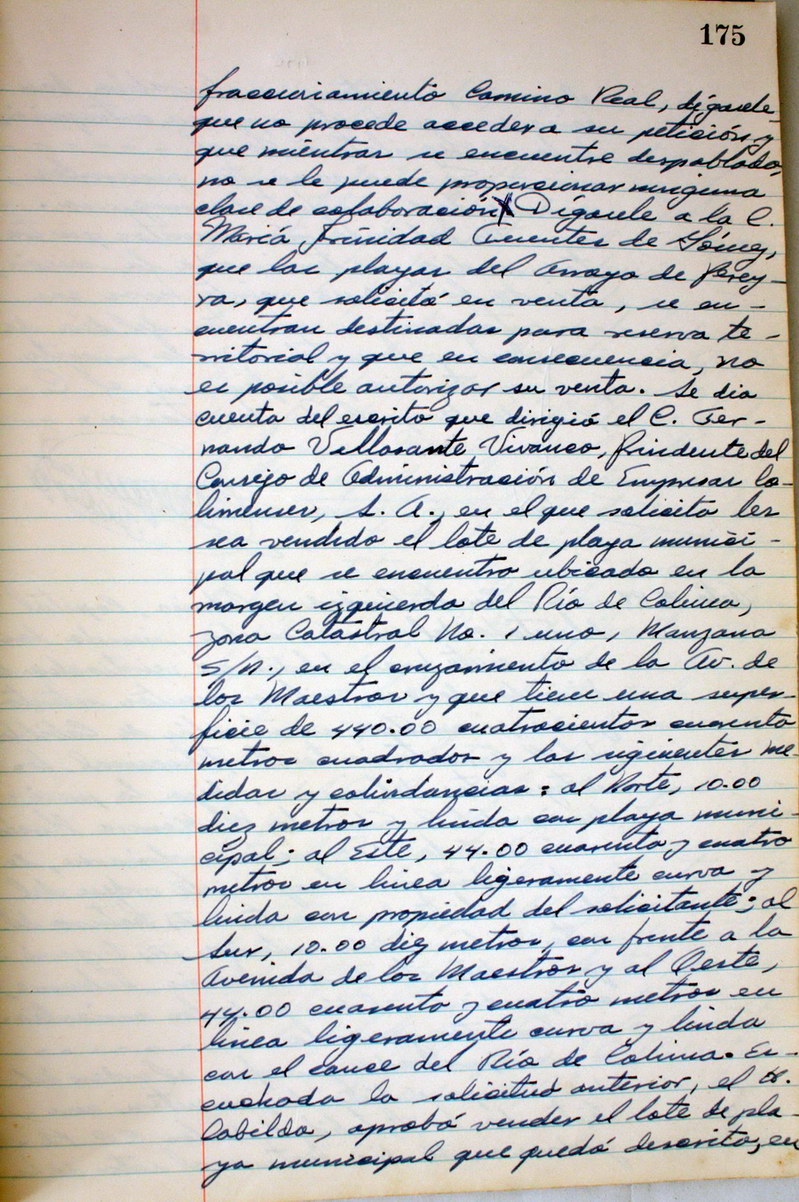 175
fraccionamiento Camino Real, dígasele
que no procede acceder a su petición, y
que mientras se encuentre despoblado,
no se le puede proporcionar ninguna
clase de colaboración. Dígasele a la C.
María Trinidad Fuentes de Gómez,
que las playas del Arroyo de Perey-
ra, que solicitó en venta, se en-
cuentran destinadas para reserva te-
rritorial y que en consecuencia, no
es posible autorizar su venta. Se dio
cuenta del escrito que dirigió el C. Fer-
nando Vivanco, Presidente del
Consejo de Administración de Empresas Co-
limenses, S. A., en el que solicita les
sea vendido el lote de playa munici-
pal que se encuentra ubicado en la
margen izquierda del Río de Colima,
zona Catastral No. 1 uno, Manzana
S/N., en el cruzamiento de la Av. de
los Maestros y que tiene una super-
ficie de 440.00 cuatrocientos cuarenta
metros cuadrados y las siguientes me-
didas y colindancias: al Norte, 10.00
diez metros y linda con playa muni-
cipal; al Este, 44.00 cuarenta y cuatro
metros en línea ligeramente curva y
linda con propiedad del solicitante; al
Sur, 10.00 diez metros, con frente a la
Avenida de los Maestros y al Oeste,
44.00 cuarenta y cuatro metros en
línea ligeramente curva y linda
con el cauce del Río de Colima. Es-
cuchada la solicitud anterior, el H.
Cabildo, aprobó vender el lote de pla-
ya municipal que quedó descrito, en